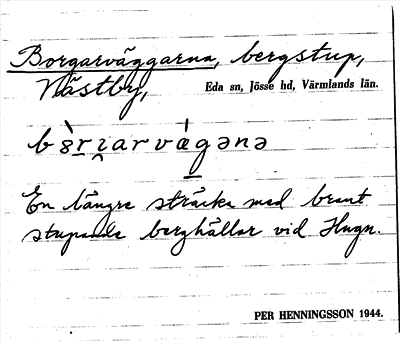 Borgarväggarna, bergstup,
Nästby, Eda sn, Jösse hd, Värmlands län.
En längre sträcka med brant
stupande berghällar vid Hugn.
PER HENNINGSSON 1944.